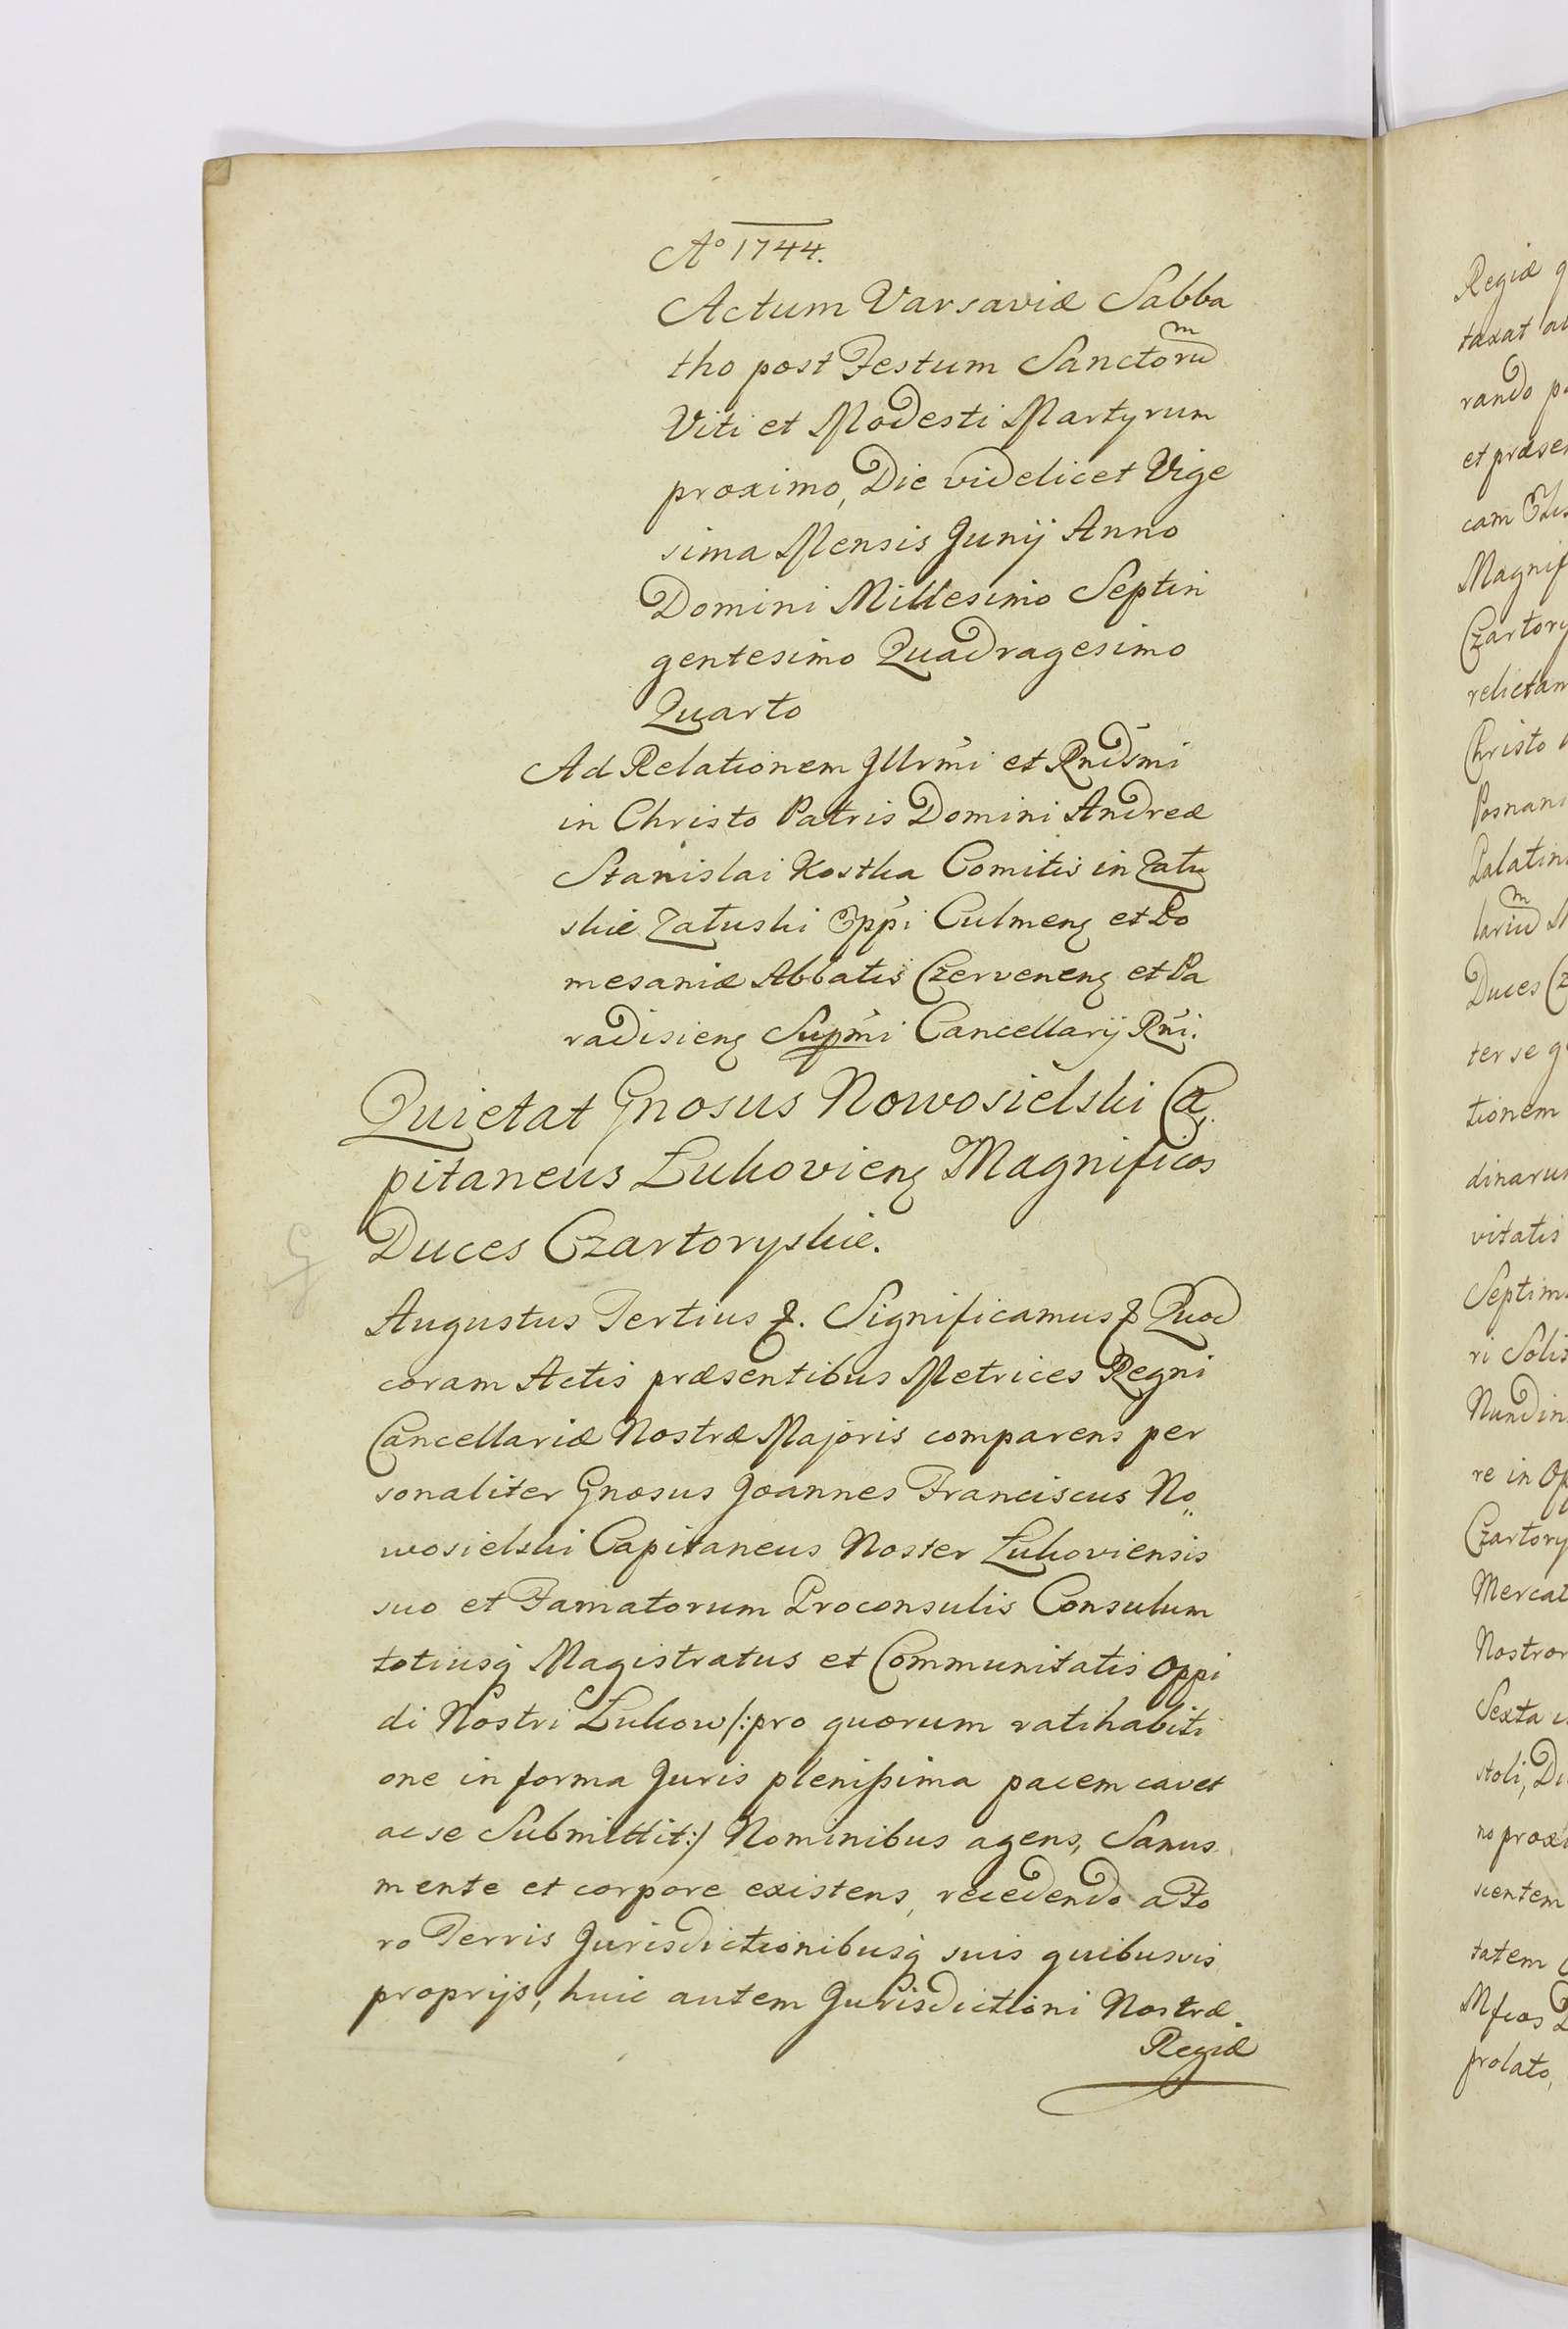 Aº 1744.
Actum Varsaviæ Sabba
tho post Festum Sanctoru͞m
Viti et Modesti Martyrum
proximo, Die videlicet Vige
sima Mensis Junij Anno
Domini Millesimo Septin
gentesimo Quadragesimo
Quarto
Ad Relationem Jllrmi et Rndsmi
in Christo Patris Domini Andreæ
Stanislai Kostka Comitis in Zału
skie Załuski Eppi Culmenȝ et Po
mesaniæ Abbatis Czervenenȝ et Pa
radisienȝ Supmi Cancellarij Rni.
Quietat Gnosus Nowosielski Ca
pitaneus Łukovienȝ Magnificos
Duces Czartoryskie.
Augustus Tertius &. Significamus & Quod
coram Actis præsentibus Metrices Regni
Cancellariæ Nostræ Majoris comparens per
sonaliter Gnosus Joannes Franciscus No
wosielski Capitaneus Noster Łukoviensis
suo et Famatorum Proconsulis Consulum
totiusq Magistratus et Communitatis Oppi
di Nostri Łukow /:pro quorum ratihabiti
one in forma Juris plenißima pacem cavet
ac se Submittit:/ Nominibus agens, Sanus
mente et corpore existens, recedendo a Fo
ro Terris Jurisdictionibusq suis quibusvis
proprijs, huic autem Jurisdictioni Nostræ
Regiæ
Regiæ
taxat
rando
et
cam
Magnif
Czartory
relictam
Christo
Posnani
Palatin
lariu͞m
Duces
ter se
tionem
dinarum
vitatis
Septim
ri Solis
Nundin
re in Op
Czartory
Mercat
Nostror
Sexta
stoli,
no prox
scentem
tatem
Mficos
prolato,